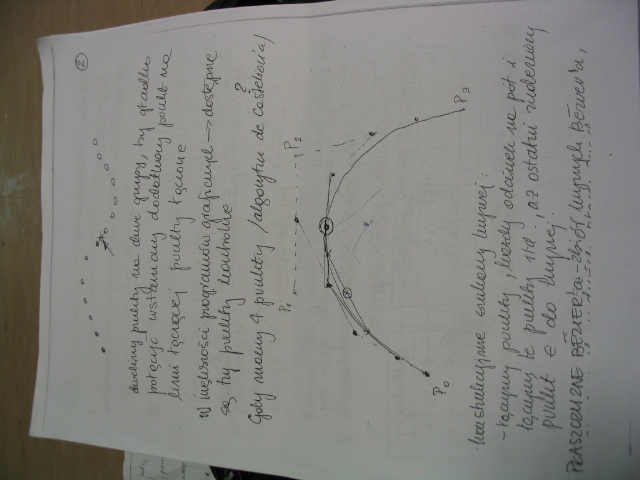 ②
dzielimy punkty na dwie grupy, by gładko
połączyć wstawiamy dodatkowy punkt na
linii łączącej punkty łączone
W większości programów graficznych → dostępne
są 4 punkty kontrolne
Gdy mamy 4 punkty /algorytm de Casteheria?/
P1
P2
P0
P3
konstrukcyjnie szukamy krzywej:
- łączymy punkty, każdy odcinek na pół i
łączymy te punkty itd., aż ostatni znaleziony
punkt ∈ do krzywej
PŁASZCZYZNE BEZIER'A - zbiór krzywych Bézier'a,